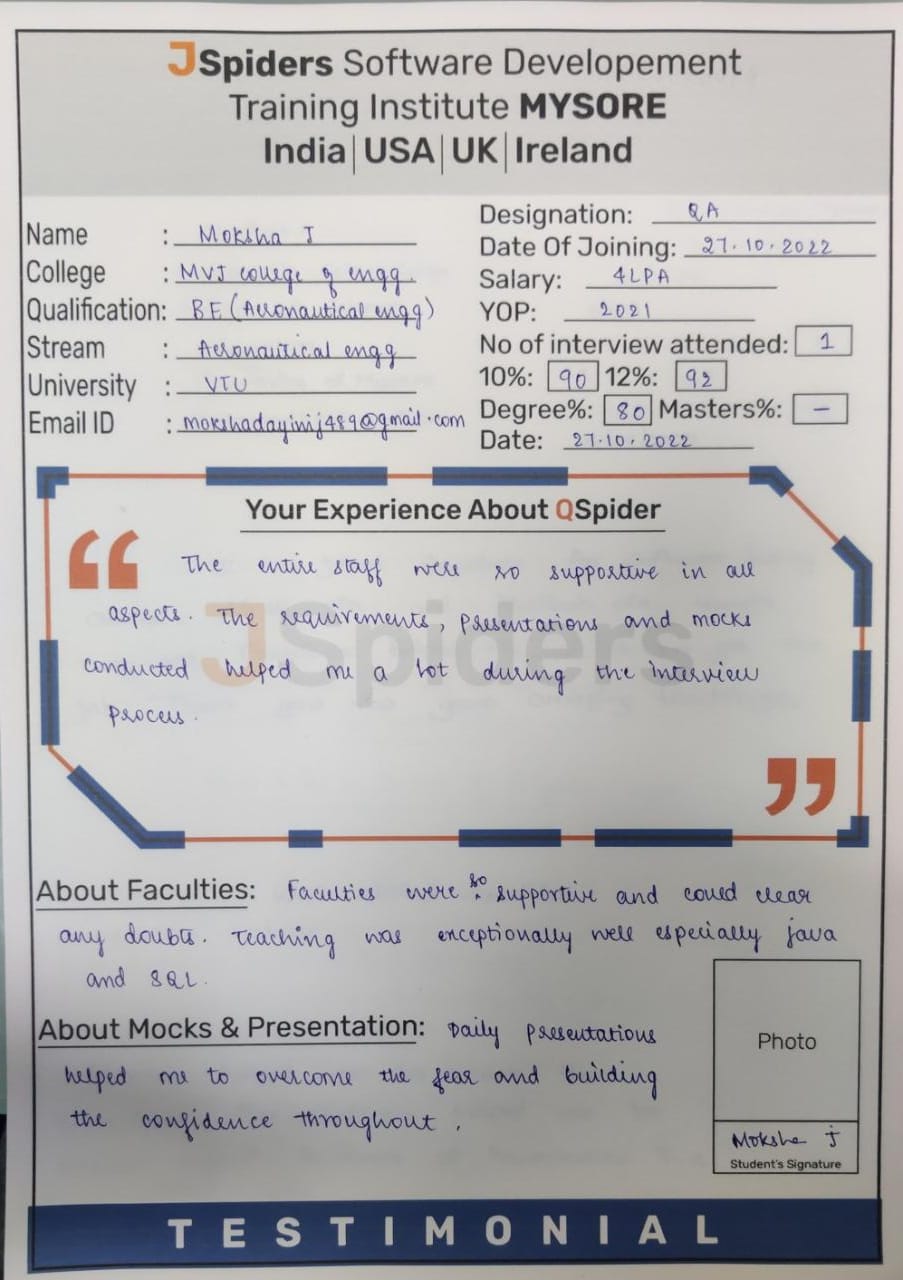 JSpiders Software Developement
Training Institute MYSORE
India | USA | UK | Ireland
Name : Moksha J
College : MVJ college of engg.
Qualification: BE (Aeronautical engg)
Stream : Aeronautical engg
University : VTU
Email ID : mokshadayinij489@gmail.com
Designation: QA
Date Of Joining: 27.10.2022
Salary: 4LPA
YOP: 2021
No of interview attended: 1
10%: 90 12%: 92
Degree%: 80 Masters%: -
Date: 27.10.2022
Your Experience About QSpider
“
The entire staff were so supportive in all
aspects. The requirements, presentations and mocks
conducted helped me a lot during the interview
process.
”
JSpiders
About Faculties: Faculties were so supportive and could clear
any doubts. Teaching was exceptionally well especially java
and SQL.
About Mocks & Presentation: Daily presentations
helped me to overcome the fear and building
the confidence throughout.
Photo
Moksha J
Student's Signature
TESTIMONIAL